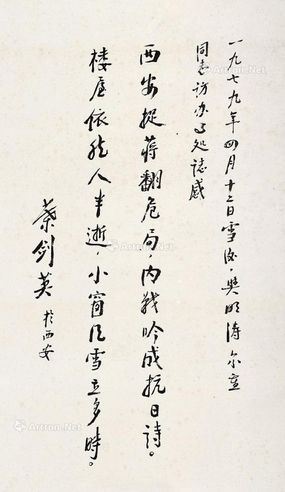 一九七九年四月十二日雪後，與明涛尔重
同志访办事处誌感
西安捉蒋翻危局，内战吟成抗日詩。
楼屋依然人半逝，小窗风雪立多時。
葉剑英 於西安
Artron.Net